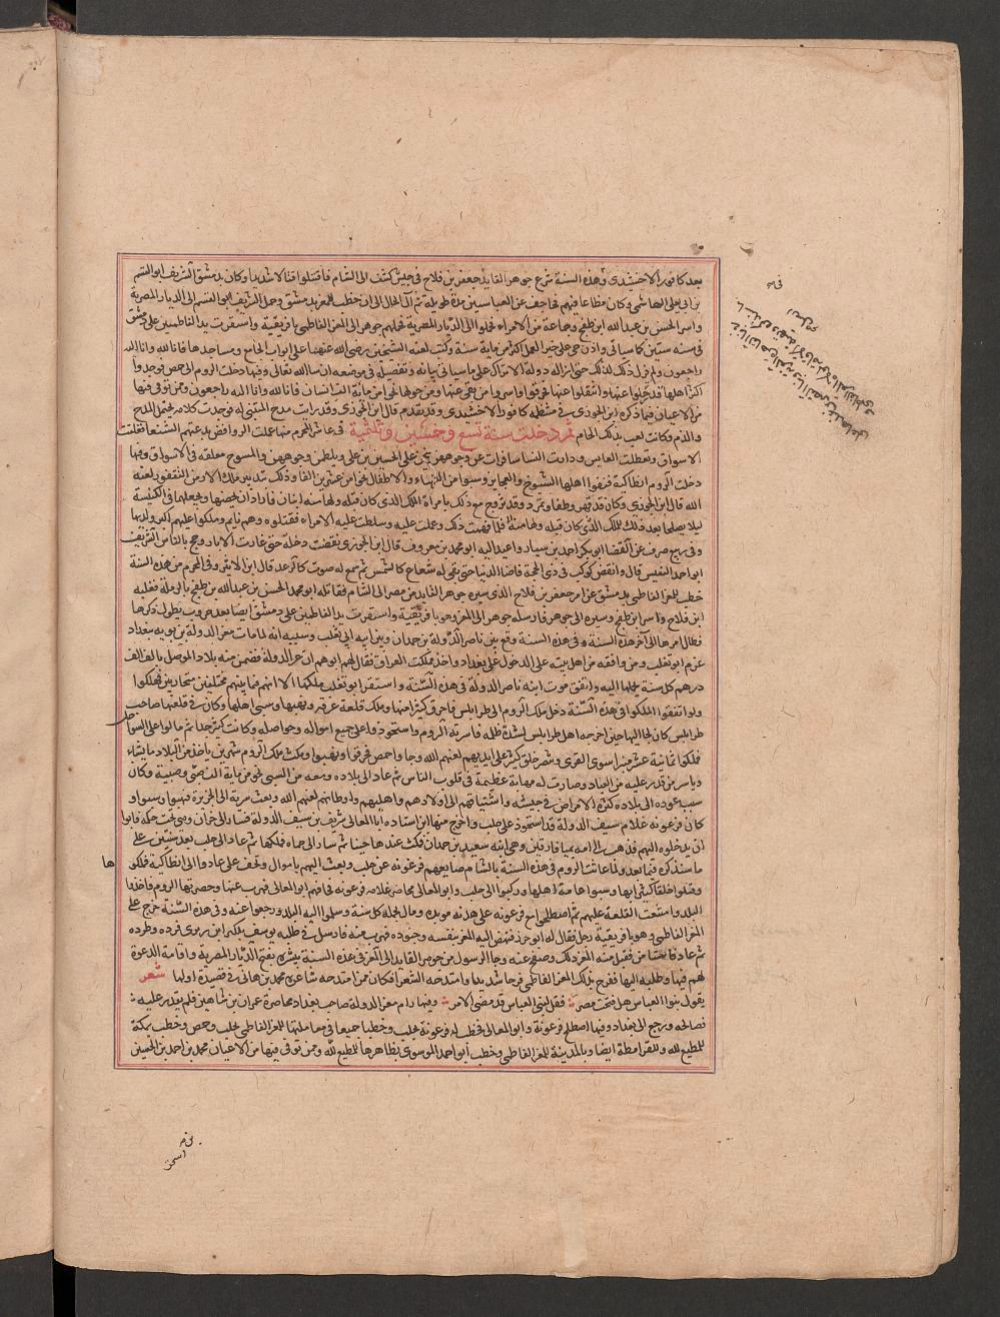 بعد كافور الاخشيدى وفى هذه السنة سرح جوهر القايد جعفر بن فلاح فى جيش كثيف الى الشام فاقتتلوا قتالا شديدا وكان بدمشق الشريف ابو القسم
بن ابى يعلى الهاشمى وكان مطاعا فيهم فحاجف عن العباسيين مدة طويلة ثم آل الحال الى ان خطب للمعز بدمشق وحمل الشريف ابو القسم الى الديار المصرية
واسر الحسن بن عبد الله ابن طغج وجماعة من الامراء فحملوا الى الديار المصرية فحملهم جوهر الى المعز الفاطمى بافريقية واستقرت يد الفاطميين على دمشق
فى سنه ستين كما سياتى واذن حى على خير العمل اكثر من ماية سنة وكتب لعنه الشيخين رضى الله عنهما على ابواب الجامع ومساجدها فانا لله وانا اليه
راجعون ولم يزل ذلك كذلك حتى ازاله دولة الاتراك على ما سياتى بيانه وتفصيله فى موضعه ان شا الله تعالى وفيها دخلت الروم الى حمص فوجدوا
اكثر اهلها قد جلوا عنها وانتقلوا عنها فحرقوا واسروا من بقى عنها ومن حولها نحوا من مائة الف انسان فانا لله وانا اليه راجعون وممن توفى فيها
من الاعيان فيما ذكره ابن الجوزى كافور الاخشيدى وقد تقدم قال ابن الجوزى وقد رايت مدح المتنبى له فوجدت كلامه يحتمل المدح
والذم وكانت لعب بذلك الخام ثم دخلت سنة تسع وخمسين وثلثمية فى عاشر المحرم منها عملت الروافض بدعتهم الشنعا فغلقت
الاسواق وتعطلت المعايس ودارت النسا سافرات عن وجوههن ينحن على الحسين بن على ويلطمن وجوههن والمسوح معلقه فى الاسواق وفيها
دخلت الروم انطاكية فنفوا اهلها الشيوخ والعجايز وسبوا من النساء والاطفال نحوا من عشرين الفا وذلك بتدبير ملك الارمن النقفور لعنه
الله قال ابن الجوزى وكان قد قهر وطغا وتمرد وقد تزوج مع ذلك بامراة الملك الذى كان قبله ولها منه ابنان فاراد ان يخصيهما ويجعلهما فى الكنيسة
ليلا يصلحا بعد ذلك للملك فلما فهمت ذلك وعملت عليه وسلطت عليه الامراء فقتلوه وهم نايم وملكوا عليهم اكبر ولديها
وفى ربيع صرف عن القضا ابو بكر احمد بن سيار واعيد اليه ابو محمد بن معروف قال ابن الجوزى نقصت دجلة حتى غارت الابار وحج بالناس الشريف
ابو احمد النقيب قال وانقض كوكب فى ذى الحجة فاضا الدنيا حتى بقى له شعاع كالشمس ثم سمع له صوت كالرعد قال ابن الاثير وفى المحرم من هذه السنة
خطب للمعز الفاطمى بدمشق عن امر جعفر بن فلاح الذى سيره جوهر القايد من مصر الى الشام فقاتله ابو محمد الحسن بن عبد الله بن طغج بالرملة فغلبه
ابن فلاح واسر ابن طغج وسيره الى جوهر فارسله جوهر الى المعز وهو بافريقية واستقرت يد الفاطمين على دمشق ايضا بعد حروب يطول ذكرها
فطال امرها الى آخر هذه السنة وفى هذه السنة وقع بين ناصر الدولة بن حمدان وبين ابنه ابى تغلب وسببه انه لما مات معز الدولة بن بويه ببغداد
عزم ابو تغلب ومن وافقه من اهل بيته على الدخول على بغداد واخذ مملكة العراق فقال لهم ابوهم ان معز الدولة
درهم كل سنة يحملها اليه واتفق موت ابنه ناصر الدولة فى هذه السنة واستقر ابو تغلب
ولو اتفقوا لملكوا فى هذه السنة دخل ملك الروم الى طرابلس فاحرق كثيرا منها وملك قلعة عرقه ونهبها وسبى اهلها وكان فى قلعتها صاحب
طرابلس كان لجا اليها حين اخرجه اهل طرابلس لشدة ظلمه فاسرته الروم واستحوذوا على جميع امواله وحواصله وكانت كثيرة جدا ثم مالوا على السواحل
فملكوا ثمانية عشر منبرا سوى القرى وتنصر خلق كثير على ايديهم لعنهم الله وجاوا حمص فحرقوا ونهبوا ومكث ملك الروم شهرين ياخذ من البلاد ما يشاء
وياسر من قدر عليه من العباد وصارت له مهابة عظيمة فى قلوب الناس ثم عاد الى بلاده ومعه من السبى نحو من ماية الف صبى وصبية وكان
سبب عوده الى بلاده كثرة الامراض فى جيشه واشتياقهم الى اولادهم واهليهم واوطانهم لعنهم الله وبعث سرية الى الجزيرة فنهبوا وسبوا و
كان قرغويه غلام سيف الدولة قد استحوذ على حلب واخرج منها ابن استاده ابا المعالى شريف بن سيف الدولة فسار الى حران وهى تحت حكمه فابوا
ان يدخلوه اليهم فذهب الى امه بميافارقين وهى ابنه سعيد بن حمدان فمكث عندها حينا ثم سار الى حماه فملكها ثم عاد الى حلب بعد سنتين على
ما سنذكره فيما بعد ولما عاثت الروم فى هذه السنة بالشام صانعهم قرغويه عن حلب وبعث اليهم باموال وتحف على عادوا الى انطاكية فملكوها
وقتلوا خلقا كثيرا بها وسبوا عامة اهلها وركبوا الى حلب وابو المعالى محاصر غلامه قرغويه فخافهم ابو المعالى فهرب عنها وحصرتها الروم فاخذوا
البلد وامتنعت القلعة عليهم ثم اصطلحوا مع قرغويه على هدنه موبدة ومال يحمله كل سنة وسلموا اليه البلد ورجعوا عنه وفى هذه السنة خرج على
المعز الفاطمى وهو بافريقية رجل يقال له ابو خزر فنهض اليه المعز بنفسه وجنوده فهرب منه فارسل فى طلبه يوسف بلكين ابن زيرى فرده وطرده
ثم عاد فقبل منه المعز ذلك وصفح عنه وجاء الرسول من جوهر القايد الى المعز فى هذه السنة يبشره بفتح الديار المصرية واقامة الدعوة
لهم فيها وطلبه اليها ففرح بذلك المعز الفاطمى فرحا شديدا وامتدحه الشعرا فكان ممن امتدحه شاعره محمد بن هانى فى قصيدة اولها شعر
يقول بنوا العباس هل فتحت مصر فقل لبنى العباس قد قضى الامر وفيها رام معز الدولة صاحب بغداد محاصرة عمران بن شاهين فلم يقدر عليه
فصالحه ورجع الى بغداد وفيها اصطلح قرغوية وابو المعالى فخطب له قرغوية بحلب وخطبا جميعا فى معاملتهما للمعز الفاطمى بحلب وحمص وخطب بمكة
للمطيع لله وللقرامطة ايضا وبالمدينة للمعز الفاطمى وخطب ابو احمد الموسوى بظاهرها للمطيع لله وممن توفى فيها من الاعيان محمد بن احمد بن الحسين